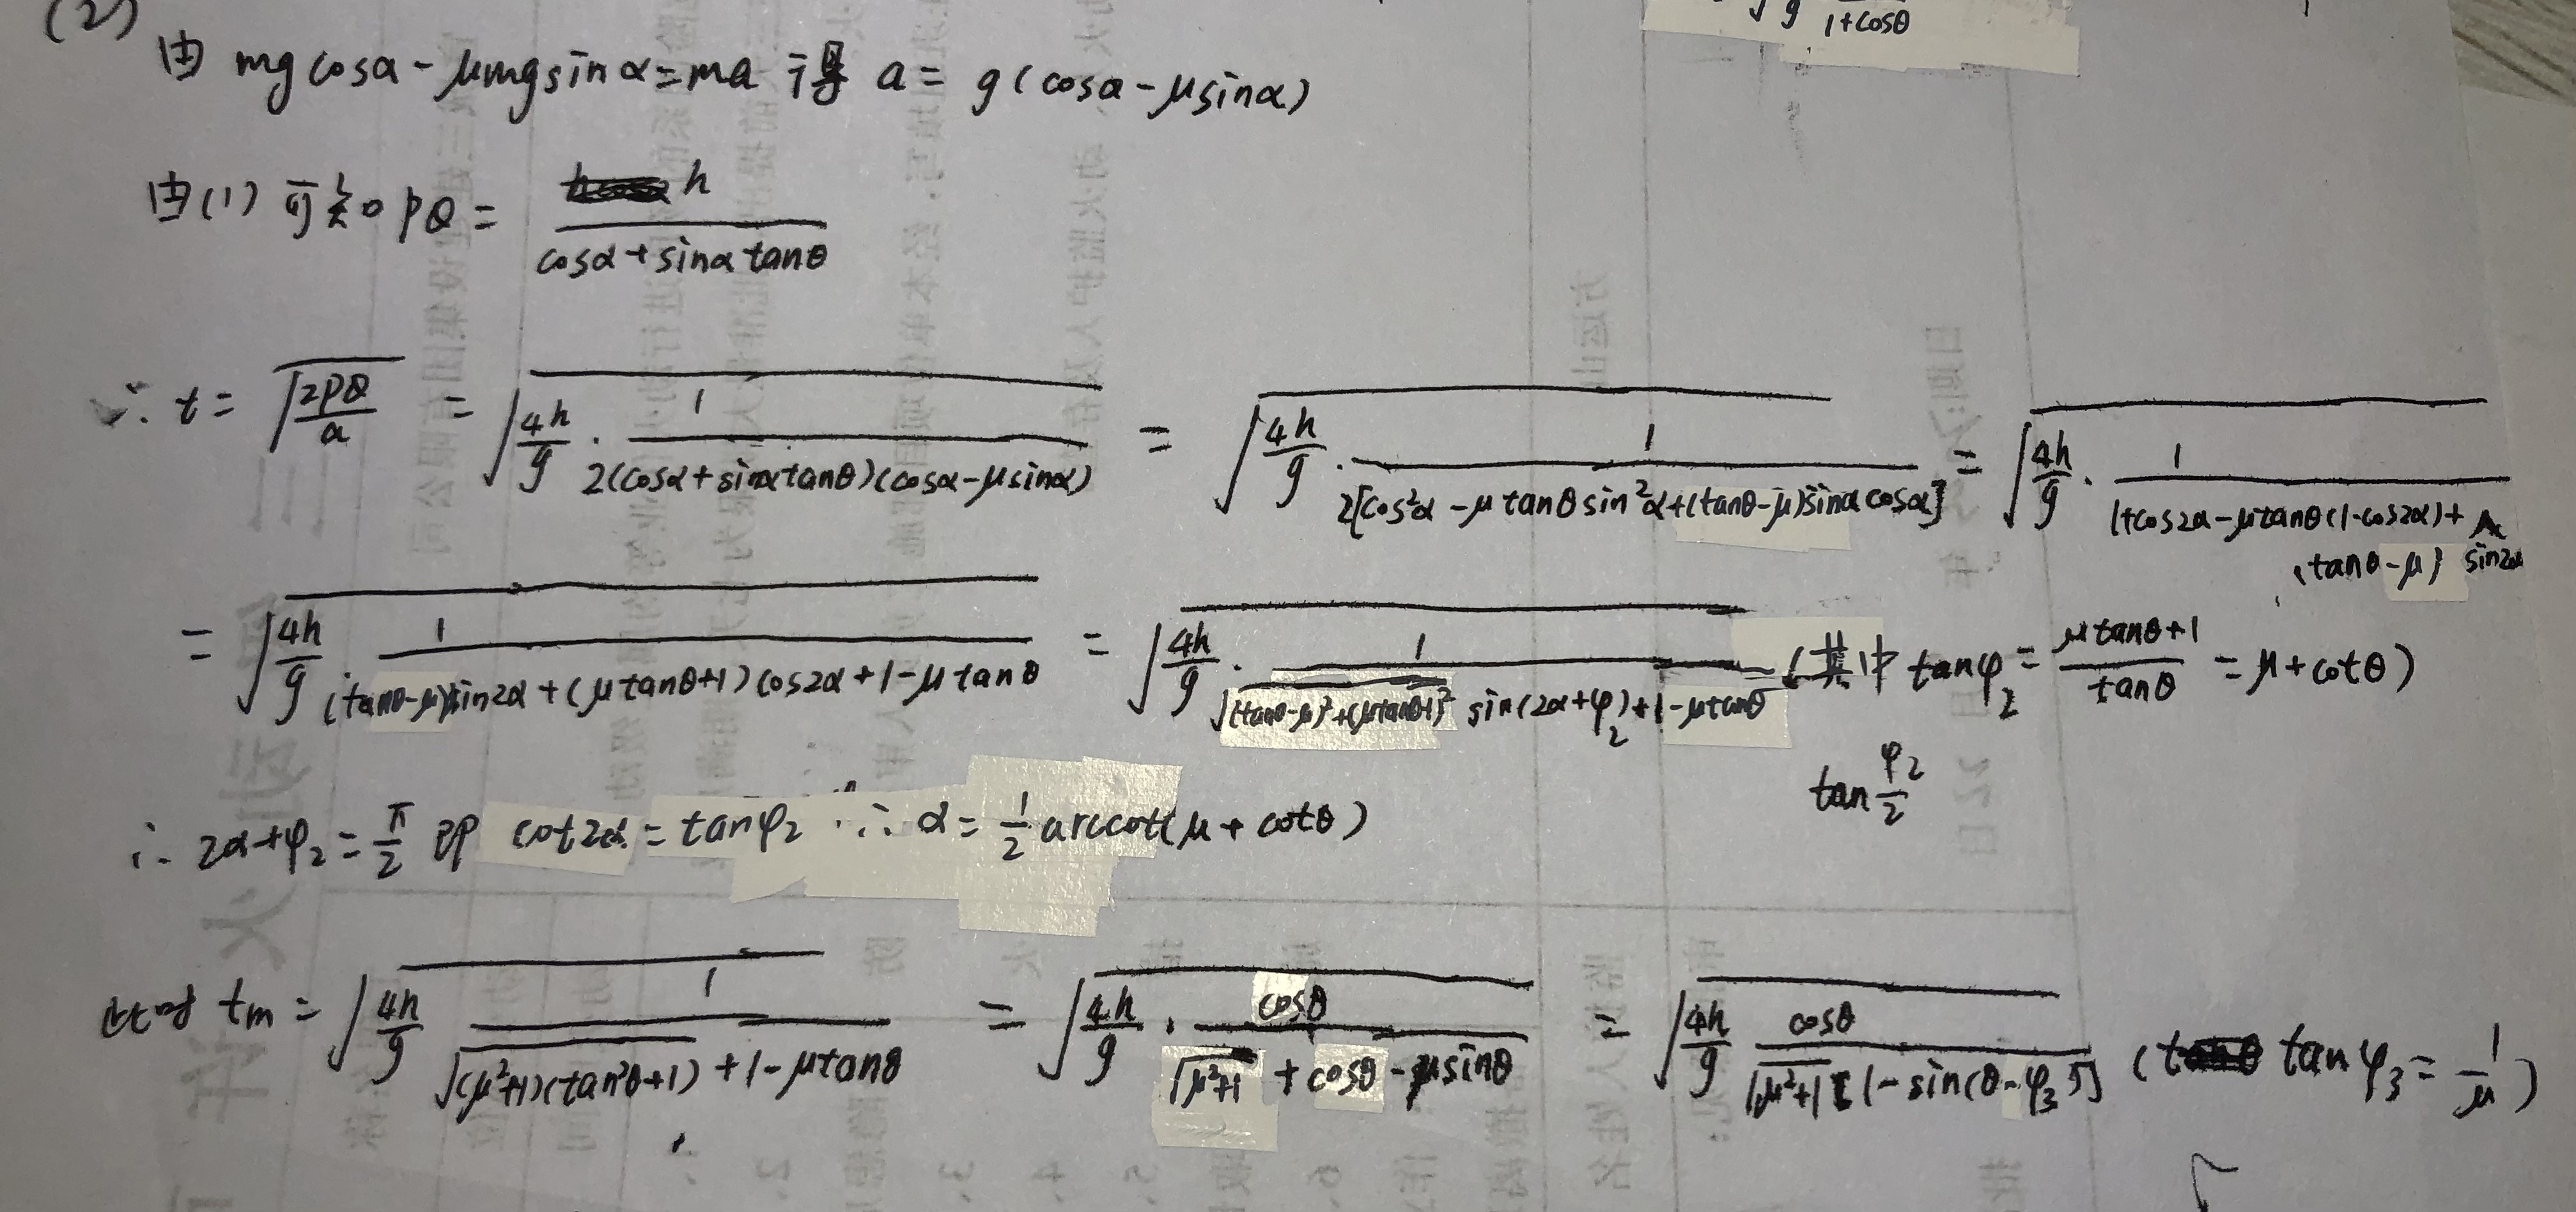 √g 1+cosθ
(2)
由 mgcosα-μmgsinα=ma 得 a= g(cosα-μsinα)
由(1)可知 PQ= h/(cosα+sinαtanθ)
∴ t= √(2PQ/a) = √(4h/g · 1/(2(cosα+sinαtanθ)(cosα-μsinα))) = √(4h/g · 1/(2[cos²α-μtanθsin²α+(tanθ-μ)sinαcosα])) = √(4h/g · 1/(1+cos2α-μtanθ(1-cos2α)+(tanθ-μ)sin2α))
= √(4h/g · 1/((tanθ-μ)sin2α+(μtanθ+1)cos2α+1-μtanθ)) = √(4h/g · 1/(√((tanθ-μ)²+(μtanθ+1)²) sin(2α+φ₂)+1-μtanθ)) (其中 tanφ₂= (μtanθ+1)/tanθ =μ+cotθ)
tan φ₂/2
∴ 2α+φ₂=π/2 即 cot2α=tanφ₂ ∴ α= 1/2 arccot(μ+cotθ)
此时 tm= √(4h/g · 1/(√((μ²+1)(tan²θ+1))+1-μtanθ)) = √(4h/g · cosθ/(√(μ²+1)+cosθ-μsinθ)) = √(4h/g · cosθ/(√(μ²+1)[1-sin(θ-φ₃)])) (tanφ₃=1/μ)